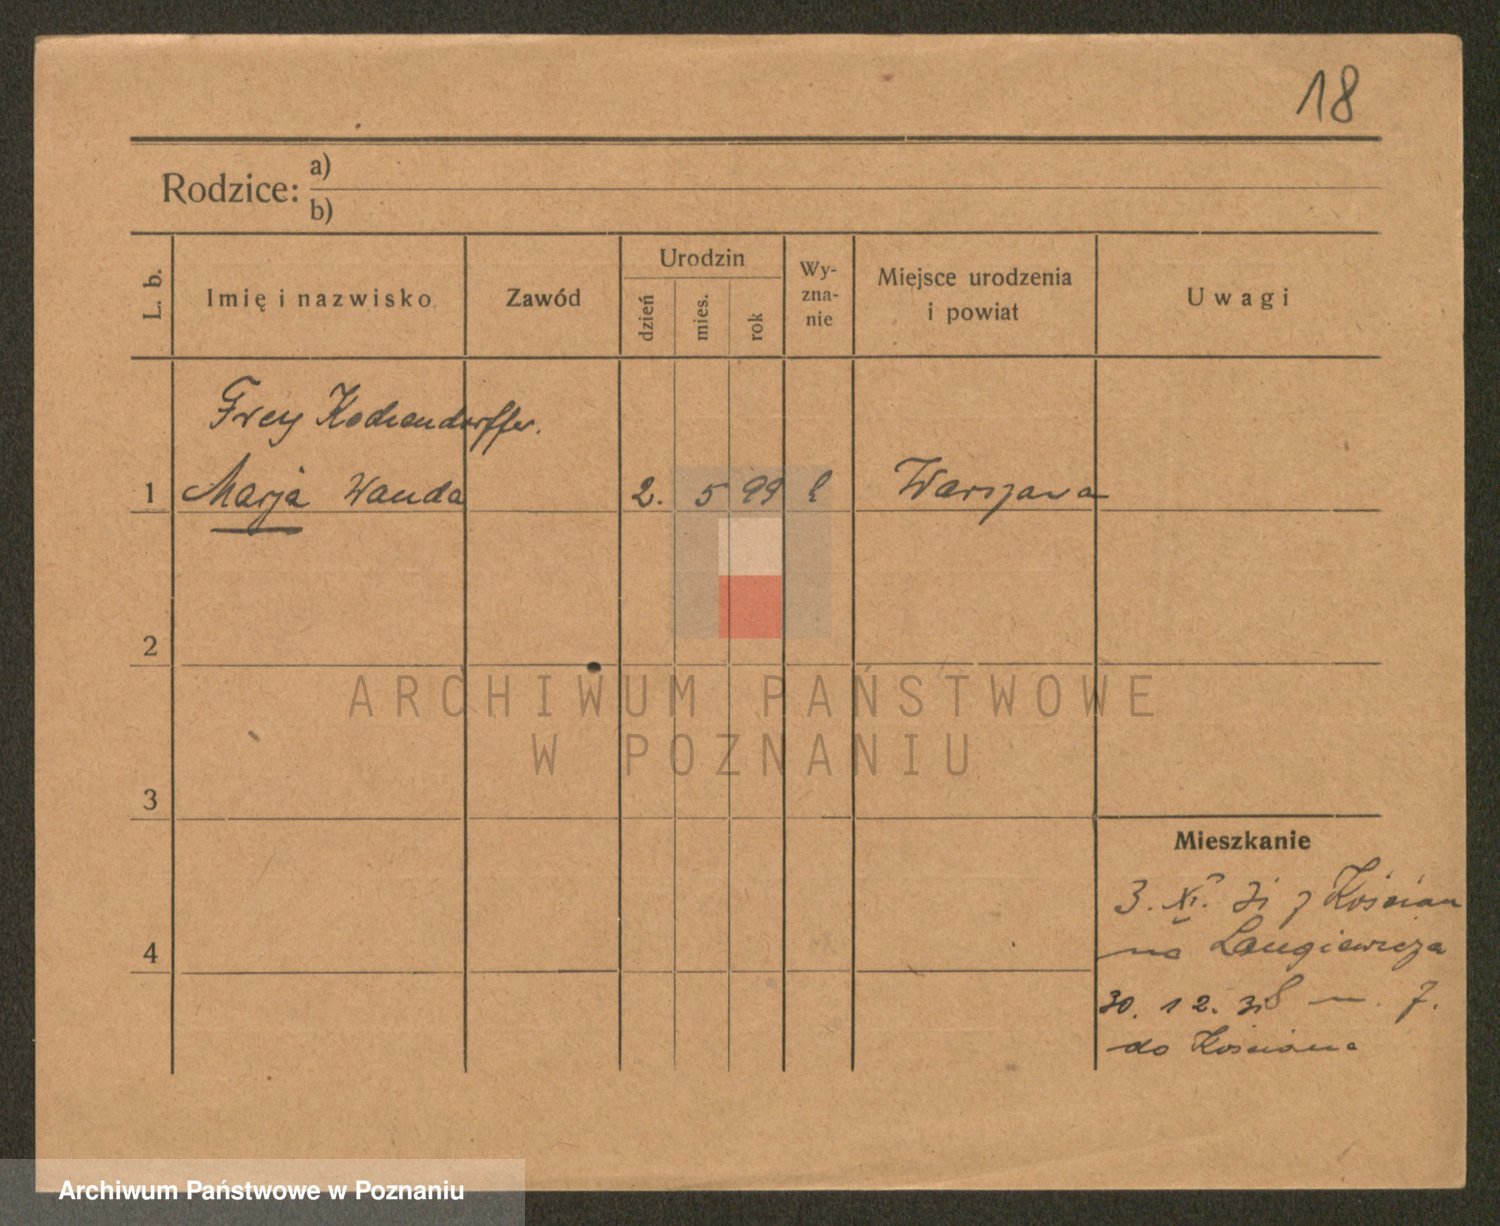 18
Rodzice: a)
b)
L. b.
Imię i nazwisko
Zawód
Urodzin
dzień
mies.
rok
Wy-
zna-
nie
Miejsce urodzenia
i powiat
Uwagi
Frey Kochendorffer.
1 Marja Wanda 2. 5 99 Warszawa
2
3
4
ARCHIWUM PAŃSTWOWE
W POZNANIU
Mieszkanie
3. XI. z Kościan
na Langiewicza
30. 12. 7.
do Kościana
Archiwum Państwowe w Poznaniu